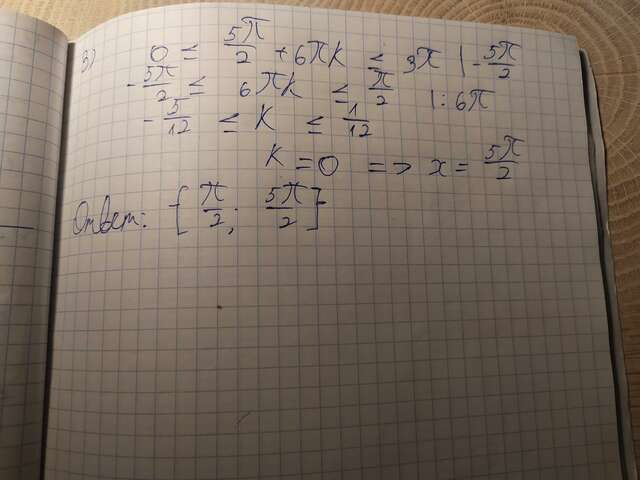 3) 0 ≤ 5π/2 + 6πk ≤ 3π | - 5π/2
- 5π/2 ≤ 6πk ≤ π/2 | : 6π
- 5/12 ≤ K ≤ 1/12
K = 0 => x = 5π/2
Ответ: [π/2; 5π/2]